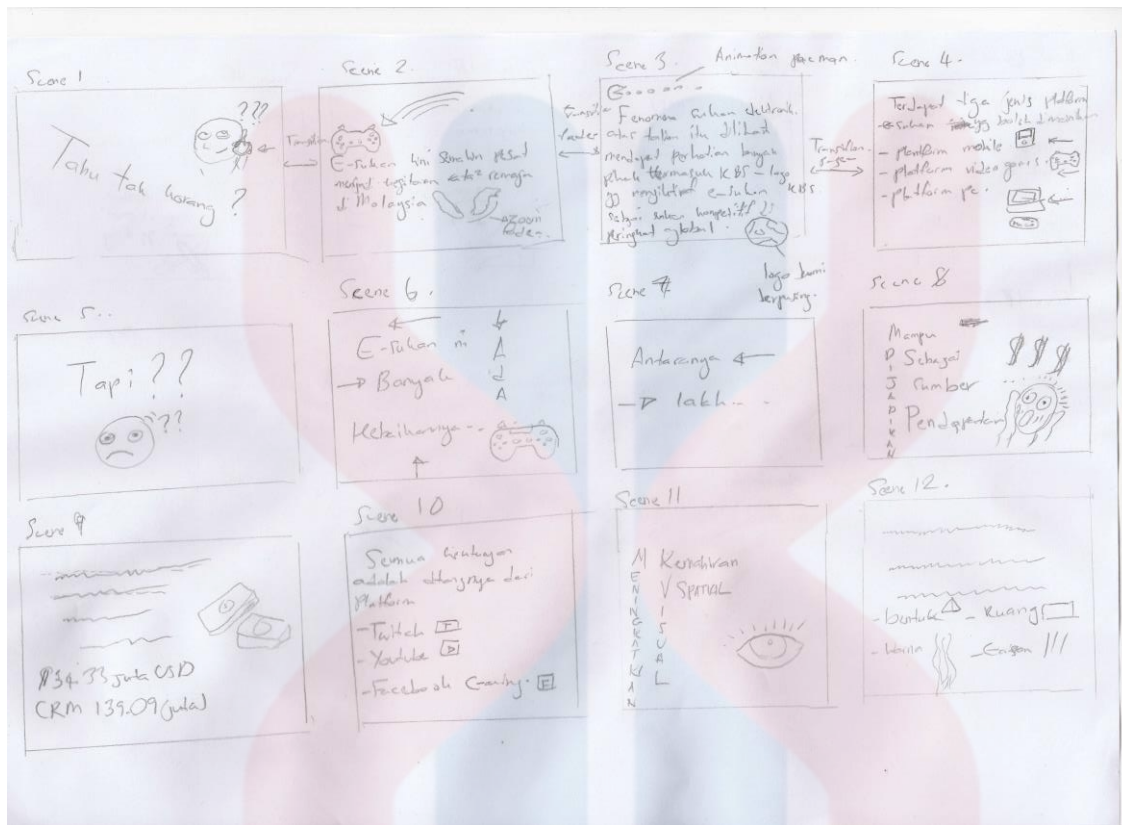 Scene 1
???
Tahu tak korang ?
Transition
Scene 2.
E-Sukan kini semakin pesat
menjadi
di Malaysia
Scene 3.
Animation pacman.
Fenomena sukan elektronik
atas talian itu dilihat
mendapat perhatian banyak
pihak termasuk KBS - logo
KBS
yg mengiktiraf e-sukan
sebagai sukan kompetitif di
peringkat global.
logo bumi
berpusing.
Transition
Scene 4.
Terdapat tiga jenis platform
e-sukan yg boleh dimainkan
- platform mobile
- platform video games.
- platform pc.
Scene 5..
Tapi ??
??
Scene 6.
E-Sukan ni
Banyak
ADA
Kebaikannya--
Scene 7
Antaranya
lakh---
Scene 8
Mampu
DIJADIKAN
Sebagai
Sumber
Pendapatan
$$$
Scene 9
$34.33 juta USD
(RM 139.09 juta)
Scene 10
Semua
adalah datangnya dari
Platform
- Twitch
- Youtube
- Facebook Gaming.
Scene 11
MENINGKATKAN
Kemahiran
VISUAL
SPATIAL
Scene 12.
- bentuk
- Ruang
- Warna